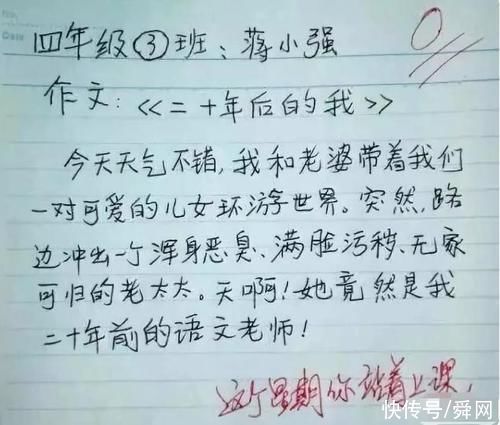 0
四年级③班：蒋小强
作文：《二十年后的我》
今天天气不错，我和老婆带着我们
一对可爱的儿女环游世界。突然，路
边冲出一个浑身恶臭、满脸污秽、无家
可归的老太太。天啊！她竟然是我
二十年前的语文老师！
这个星期你站着上课，
快传号/舜网